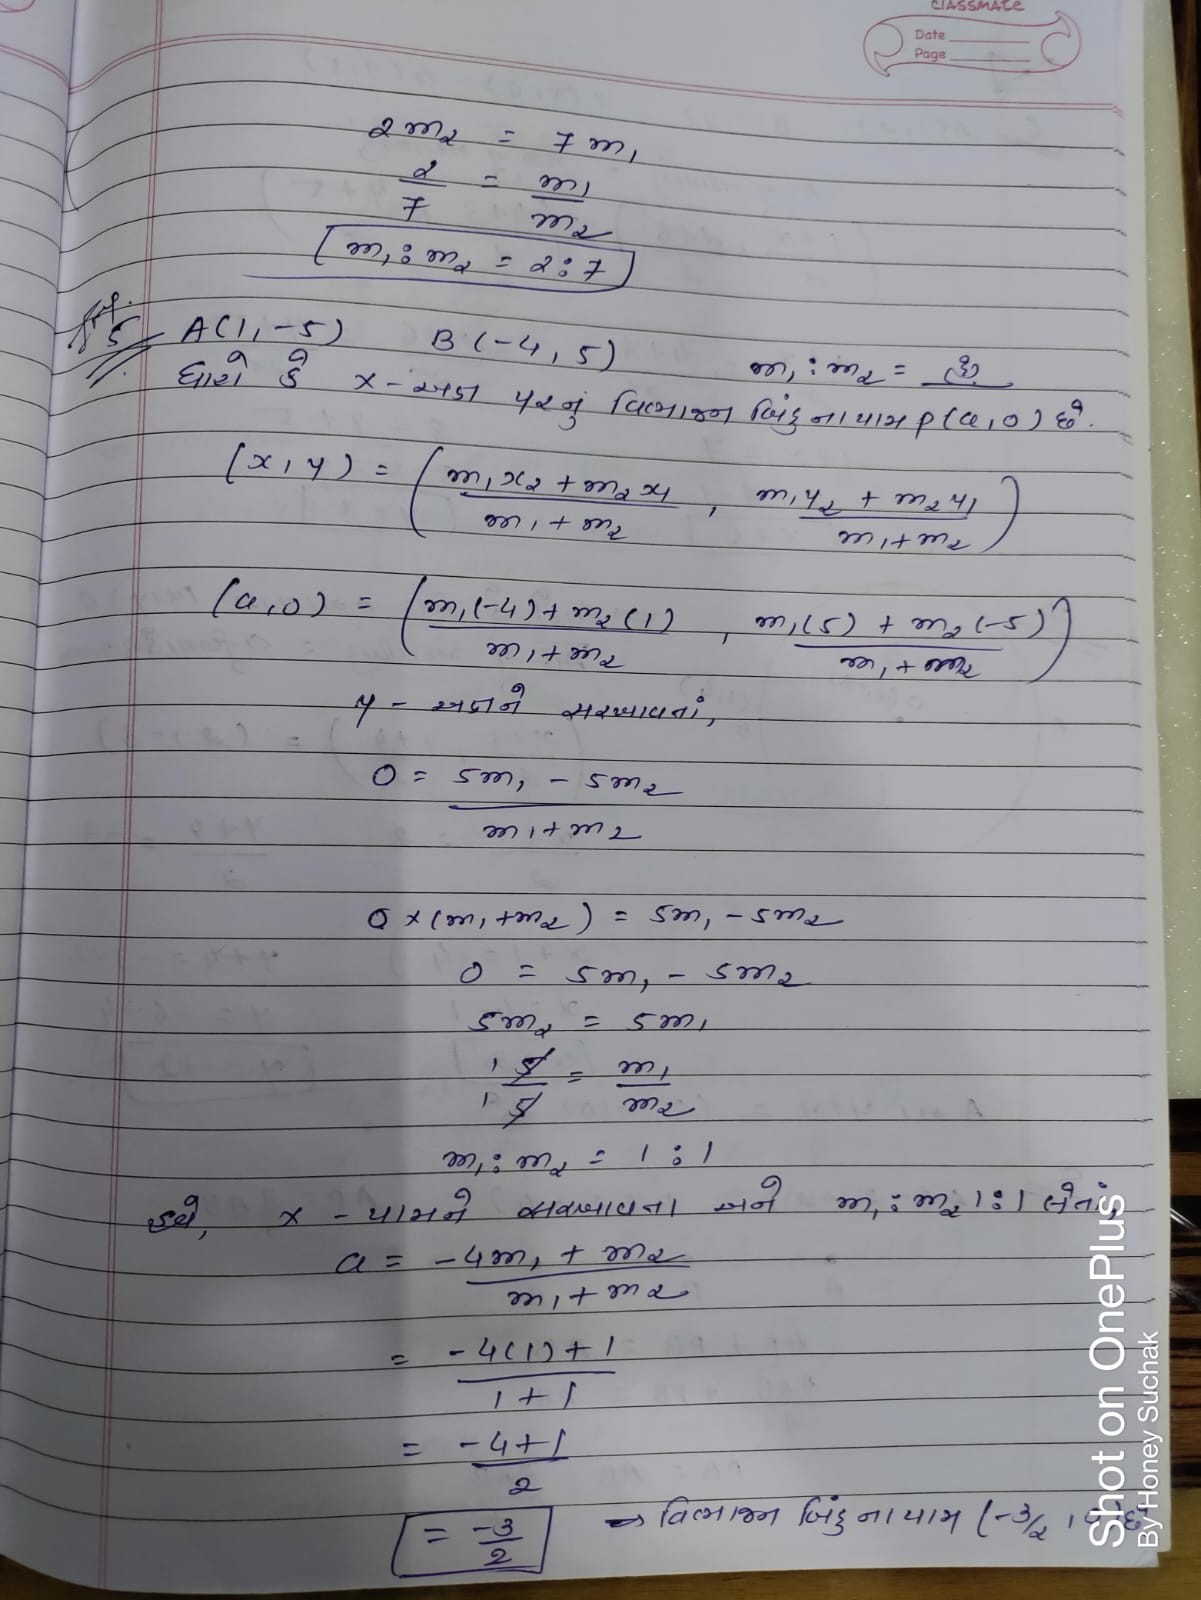 classmate
Date
Page
2m₂ = 7m₁
2/7 = m₁/m₂
m₁ : m₂ = 2 : 7
5 A(1, -5) B(-4, 5) m₁ : m₂ =
ધારો કે x-અક્ષ પરનું વિભાજન બિંદુના યામ P(a, 0) છે.
(x, y) = ( (m₁x₂ + m₂x₁)/(m₁ + m₂) , (m₁y₂ + m₂y₁)/(m₁ + m₂) )
(a, 0) = ( (m₁(-4) + m₂(1))/(m₁ + m₂) , (m₁(5) + m₂(-5))/(m₁ + m₂) )
y - અક્ષને સરખાવતાં,
0 = (5m₁ - 5m₂)/(m₁ + m₂)
0 × (m₁ + m₂) = 5m₁ - 5m₂
0 = 5m₁ - 5m₂
5m₂ = 5m₁
1 5/1 5 = m₁/m₂
m₁ : m₂ = 1 : 1
હવે, x - યામને સરખાવતા અને m₁ : m₂ 1 : 1 લેતાં,
a = (-4m₁ + m₂)/(m₁ + m₂)
= (-4(1) + 1)/(1 + 1)
= (-4 + 1)/2
= -3/2 → વિભાજન બિંદુના યામ (-3/2,
Shot on OnePlus
By Honey Suchak